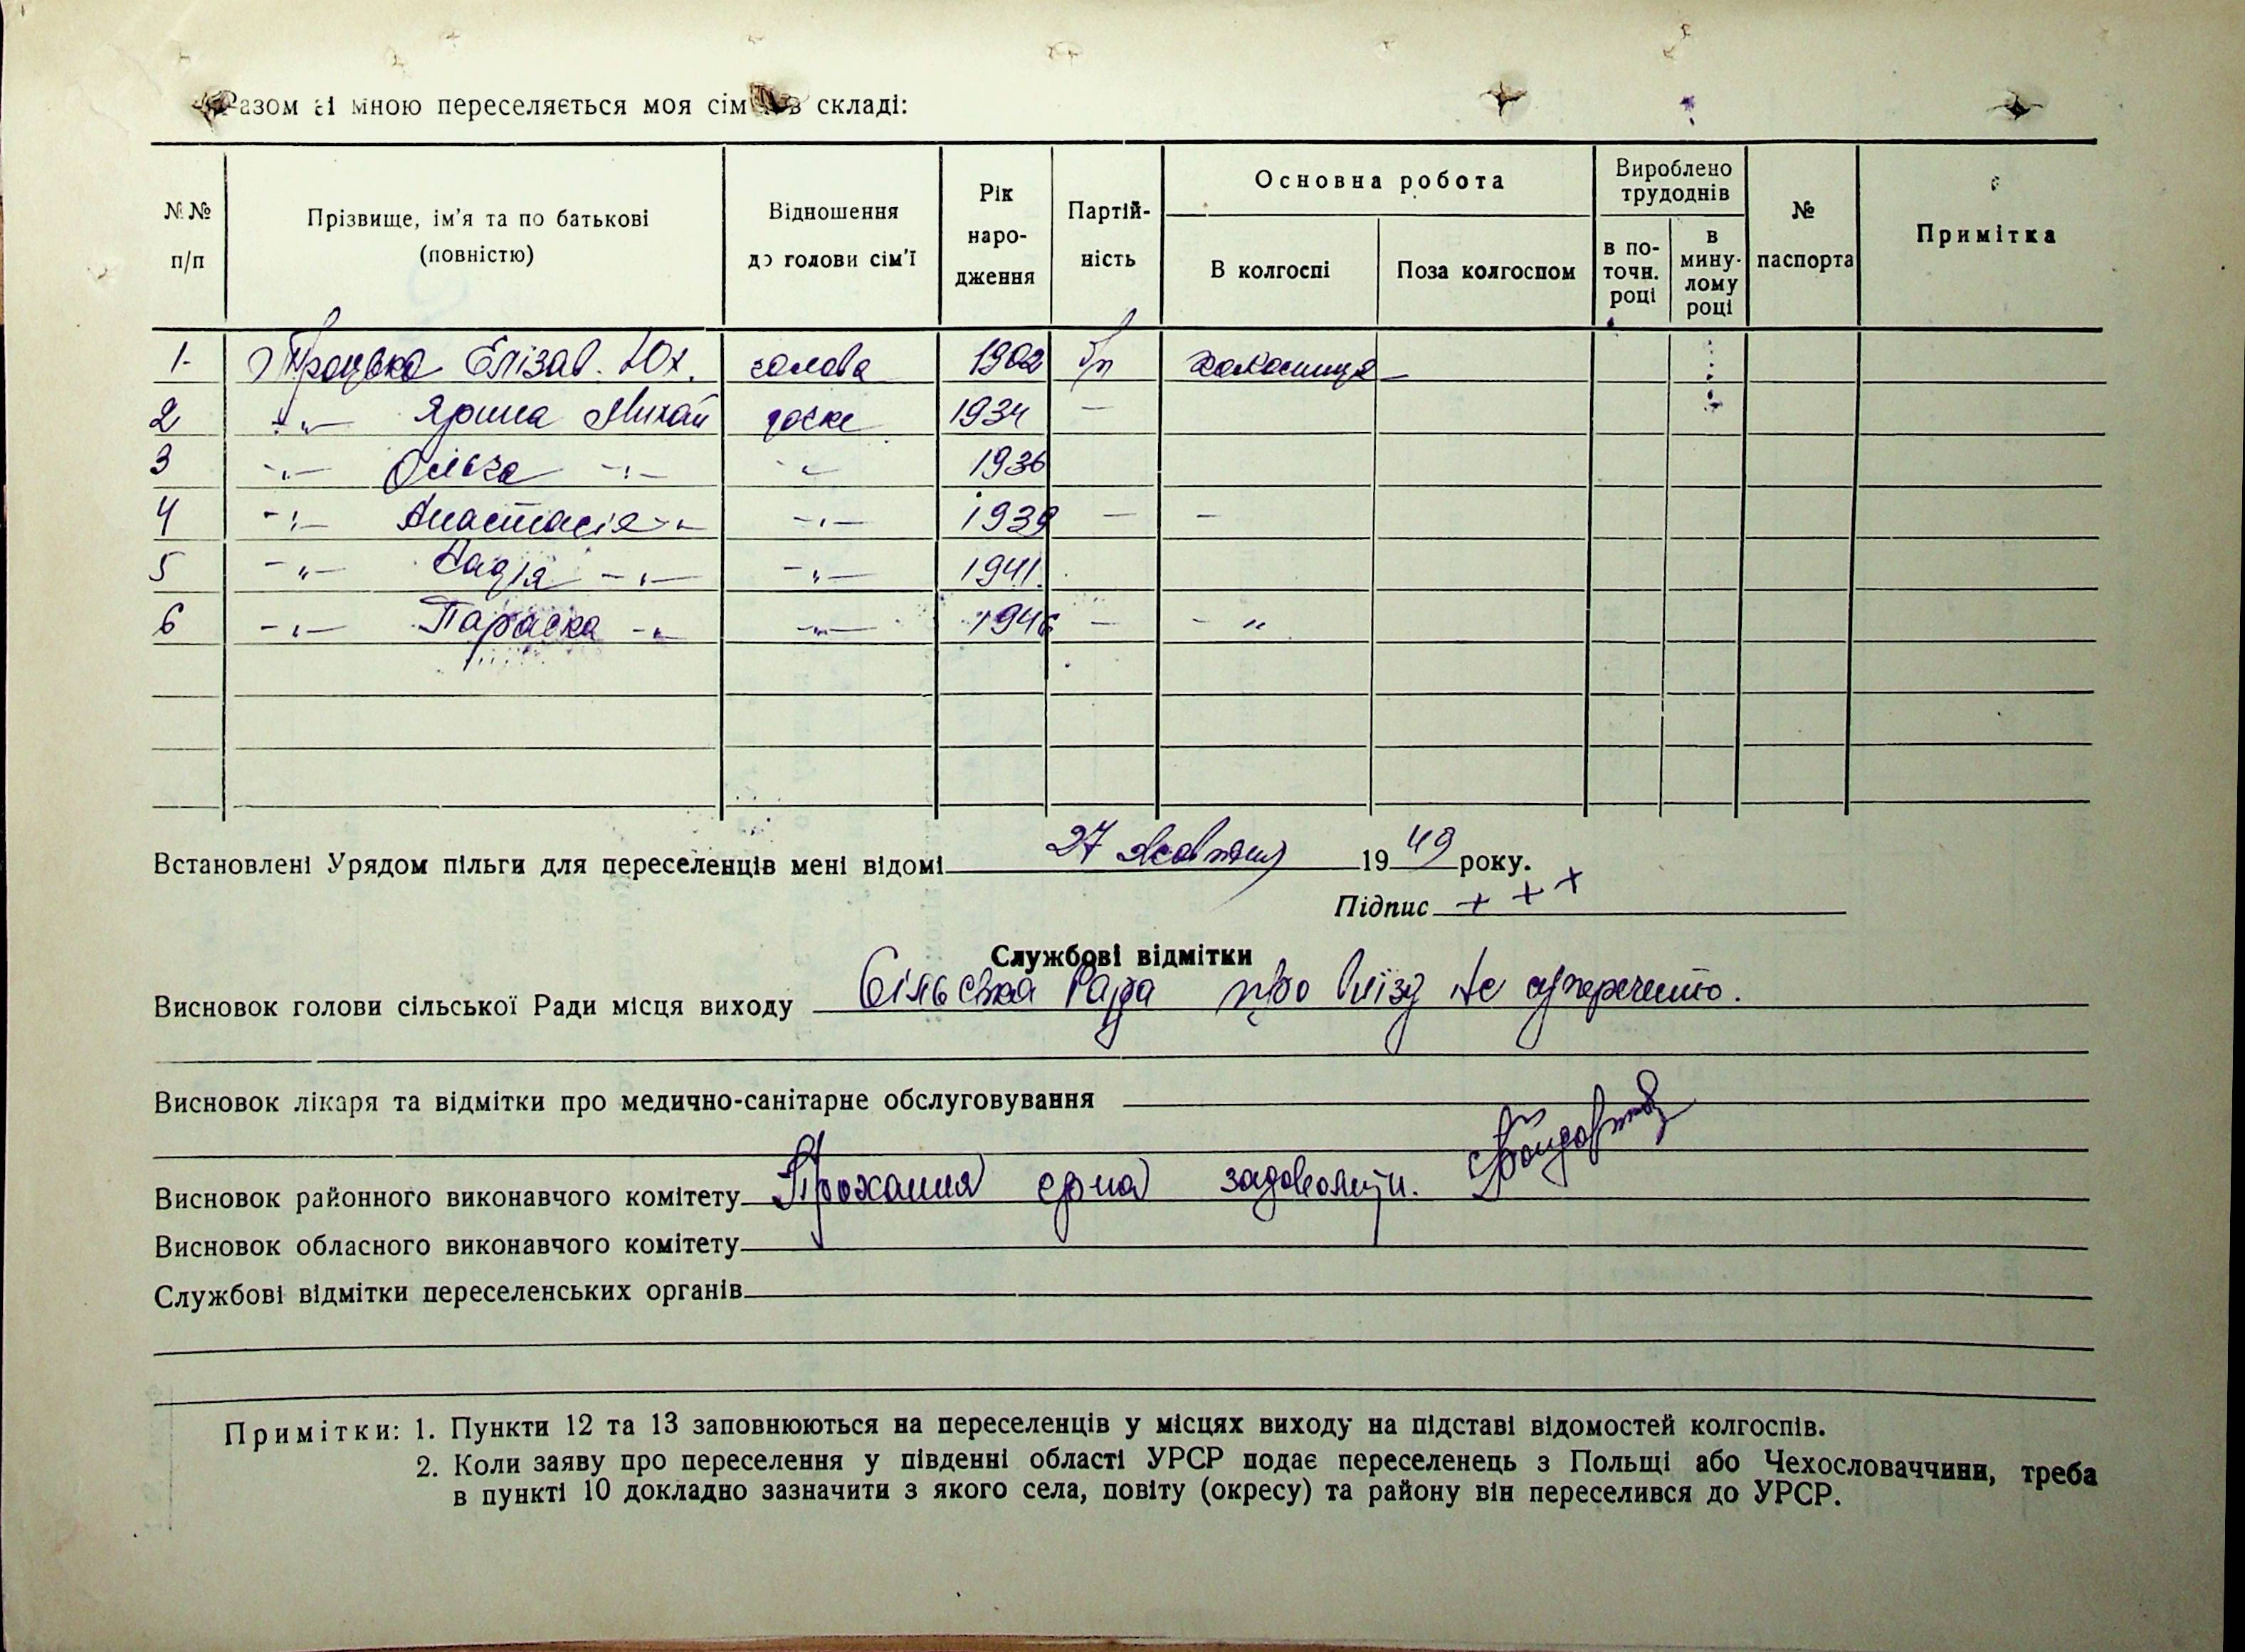 Разом зі мною переселяється моя сім в складі:
№№ п/п
Прізвище, ім'я та по батькові (повністю)
Відношення до голови сім'ї
Рік народження
Партійність
Основна робота
В колгоспі
Поза колгоспом
Вироблено трудоднів
в поточн. році
в минулому році
№ паспорта
Примітка
1. Троцька Елізав. Юх. голова 1902 б/п
2 -"- Ярина Михай дочка 1934 —
3 -"- Ольга -"- -"- 1936
4 -"- Анастасія -"- -"- 1939 — -
5 -"- Надія -"- -"- 1941.
6 -"- Параска -"- -"- 1946 — - "
Встановлені Урядом пільги для переселенців мені відомі 27 жовтня 1949 року.
Підпис + + +
Службові відмітки
Висновок голови сільської Ради місця виходу Сільська Рада про виїзд не суперечить.
Висновок лікаря та відмітки про медично-санітарне обслуговування
Висновок районного виконавчого комітету Прохання
Висновок обласного виконавчого комітету
Службові відмітки переселенських органів
Примітки: 1. Пункти 12 та 13 заповнюються на переселенців у місцях виходу на підставі відомостей колгоспів.
2. Коли заяву про переселення у південні області УРСР подає переселенець з Польщі або Чехословаччини, треба
в пункті 10 докладно зазначити з якого села, повіту (окресу) та району він переселився до УРСР.